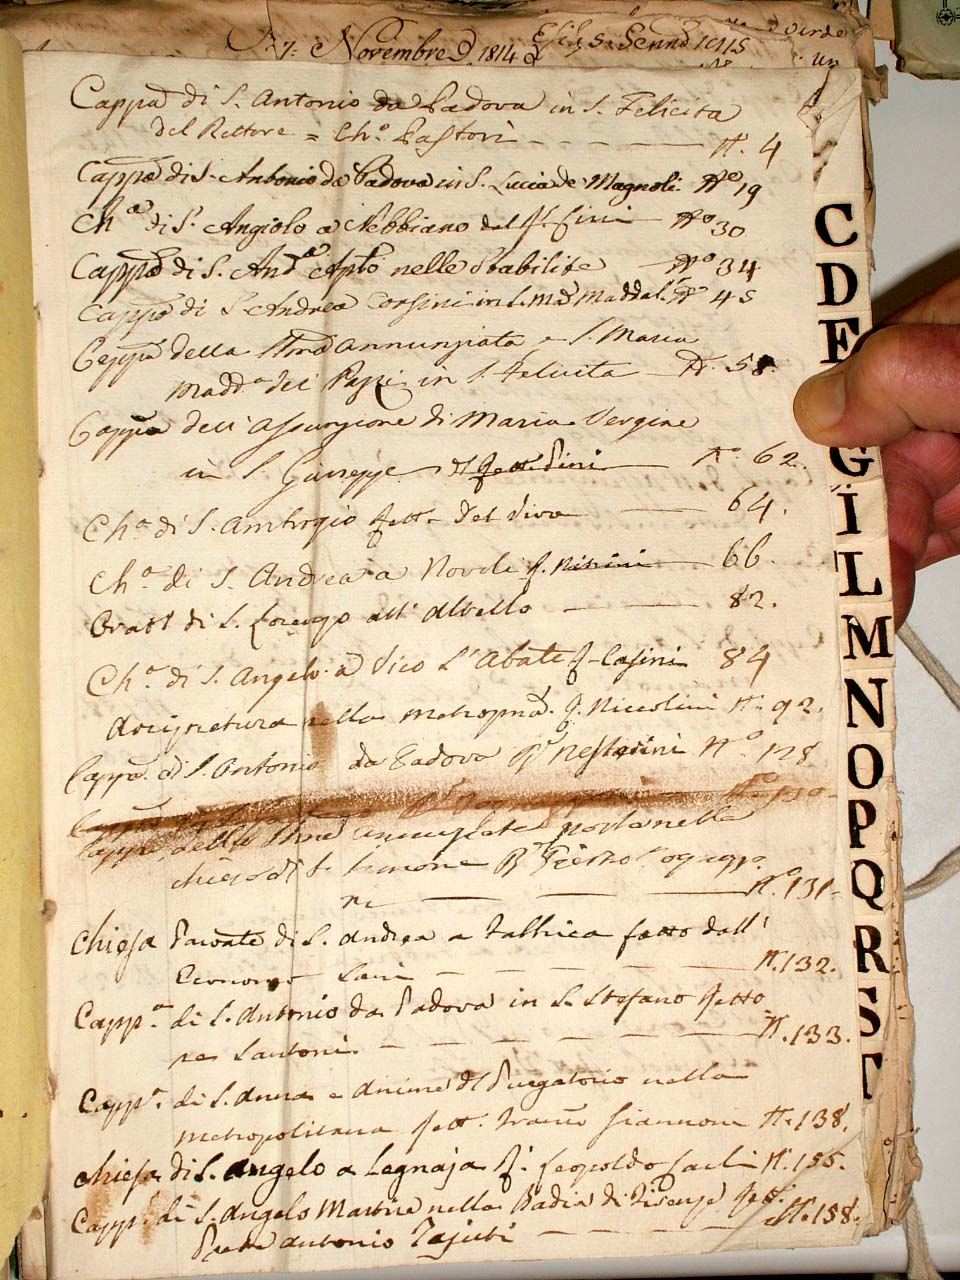 7: Novembre 1814
Capp.a di S. Antonio da Padova in S. Felicita
del Rettore = Ch.o Pastori - - - N. 4
Capp.a di S. Antonio da Padova in S. Lucia de Magnoli N.o 19
Ch.a di S. Angiolo a Nebbiano del f. Cini N.o 30
Capp.a di S. And.a Apto nelle Stabilite N.o 34
Capp.a di S. Andrea Corsini in S. M.a Maddal. N.o 45
Capp.a della SSma Annunziata e S. Maria
Madd.a dei Pazzi in S. Felicita N. 58.
Capp.a dell'Assunzione di Maria Vergine
in S. Giuseppe N.o 62.
Ch.a di S. Ambrogio fett.e Del Vivo 64.
Ch.a di S. Andrea a Novoli f. 66.
Orat.o di S. Lorenzo all'Albello 82.
Ch.a di S. Angelo a Vico L'Abate f. Casini 84
nella Metropna. f. Niccolini N. 92.
Capp.a di S. Antonio da Padova N.o 128
N.o 130
Capp.a della SSma Annunziata posta nella
chiesa di S. Simone
ri N.o 131.
Chiesa di S. Andrea a fatto dall'
Economo N. 132.
Capp.a di S. Antonio da Padova in S. Stefano fetto
re Santoni. N. 133.
Capp.a di S. Anna e Anime del Purgatorio nella
Metropolitana fett. Giannoni N. 138.
Chiesa di S. Angelo a Legnaja f. Leopoldo N. 155.
Capp.a di S. Angelo Martire nella Badia di
Antonio Tajuti N. 158.
C
D
E
G
I
L
M
N
O
P
Q
R
S
T